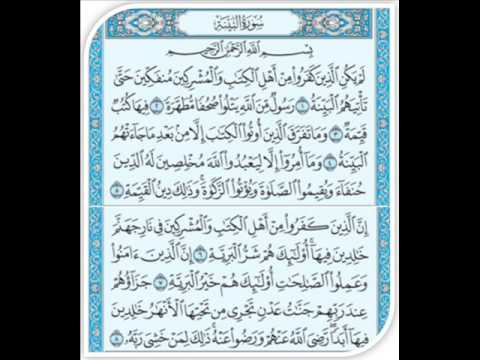 سُورَةُ الْبَيِّنَةِ
بِسْمِ اللَّهِ الرَّحْمَٰنِ الرَّحِيمِ
لَمْ يَكُنِ الَّذِينَ كَفَرُوا مِنْ أَهْلِ الْكِتَابِ وَالْمُشْرِكِينَ مُنفَكِّينَ حَتَّىٰ
تَأْتِيَهُمُ الْبَيِّنَةُ ١ رَسُولٌ مِّنَ اللَّهِ يَتْلُو صُحُفًا مُّطَهَّرَةً ٢ فِيهَا كُتُبٌ
قَيِّمَةٌ ٣ وَمَا تَفَرَّقَ الَّذِينَ أُوتُوا الْكِتَابَ إِلَّا مِن بَعْدِ مَا جَاءَتْهُمُ
الْبَيِّنَةُ ٤ وَمَا أُمِرُوا إِلَّا لِيَعْبُدُوا اللَّهَ مُخْلِصِينَ لَهُ الدِّينَ
حُنَفَاءَ وَيُقِيمُوا الصَّلَوٰةَ وَيُؤْتُوا الزَّكَوٰةَ وَذَٰلِكَ دِينُ الْقَيِّمَةِ ٥
إِنَّ الَّذِينَ كَفَرُوا مِنْ أَهْلِ الْكِتَابِ وَالْمُشْرِكِينَ فِي نَارِ جَهَنَّمَ
خَالِدِينَ فِيهَا أُولَٰئِكَ هُمْ شَرُّ الْبَرِيَّةِ ٦ إِنَّ الَّذِينَ آمَنُوا
وَعَمِلُوا الصَّالِحَاتِ أُولَٰئِكَ هُمْ خَيْرُ الْبَرِيَّةِ ٧ جَزَاؤُهُمْ
عِندَ رَبِّهِمْ جَنَّاتُ عَدْنٍ تَجْرِي مِن تَحْتِهَا الْأَنْهَارُ خَالِدِينَ
فِيهَا أَبَدًا رَّضِيَ اللَّهُ عَنْهُمْ وَرَضُوا عَنْهُ ذَٰلِكَ لِمَنْ خَشِيَ رَبَّهُ ٨